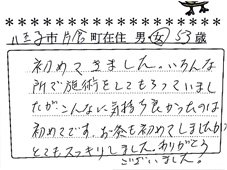 八王子市片倉町在住 男・女 53歳
初めてきました。いろんな
所で施術をしてもらっていまし
たが、こんなに気持ち良かったのは
初めてです。お灸も初めてしましたが
とてもスッキリしました。ありがとう
ございました。